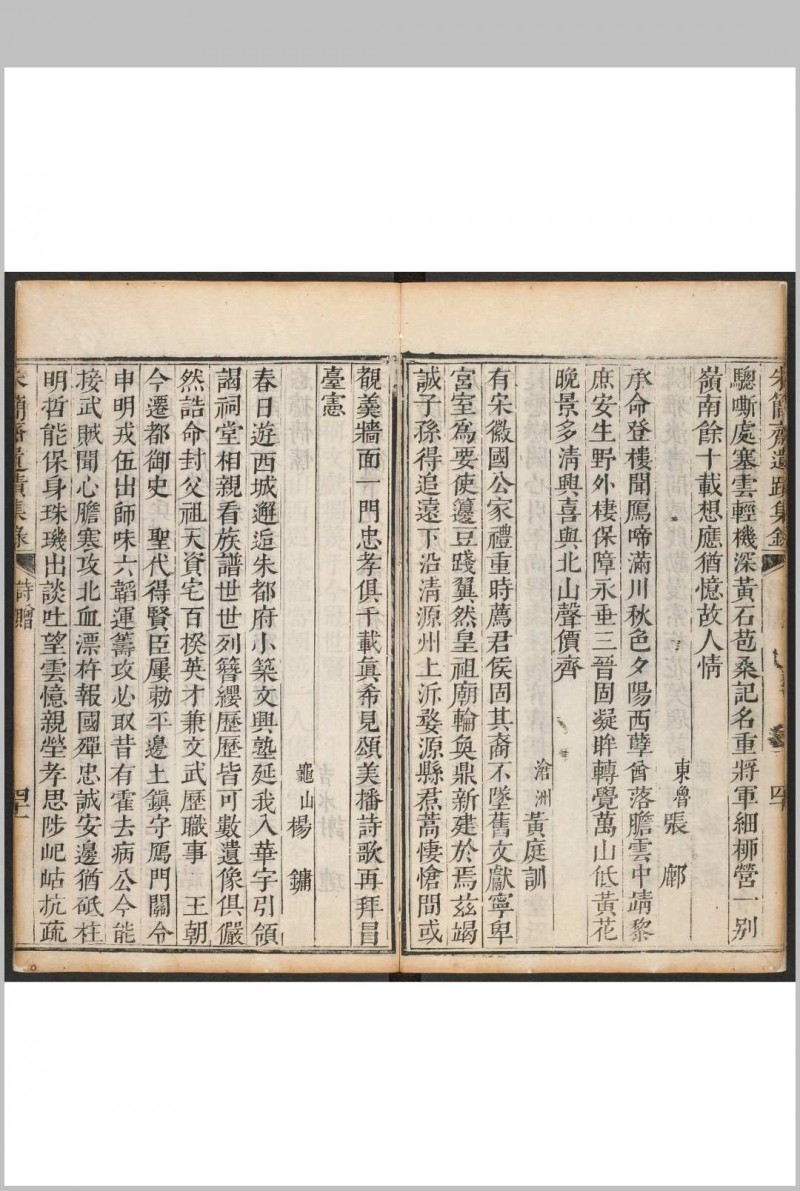 朱簡齋遺蹟集錄
四十
驄嘶處塞雲輕機深黃石苞桑記名重將軍細栁營一别
嶺南餘十載想應猶憶故人情
東魯張鄺
承命登樓聞鴈啼滿川秋色夕陽西孽酋落膽雲中靖黎
庶安生野外棲保障永垂三晉固凝眸轉覺萬山低黃花
晚景多淸興喜與北山聲價齊
滄洲黃庭訓
有宋徽國公家禮重時薦君侯固其裔不墜舊文獻寧卑
宮室爲要使籩豆踐翼然皇祖廟輪奐鼎新建於焉玆竭
誠子孫得追遠下沿淸源州上泝婺源縣焄蒿悽愴間或
觀羹牆面一門忠孝俱千載眞希見頌美播詩歌再拜冒
臺憲
龜山楊鏞
春日遊西城邂逅朱都府小築文興塾延我入華宇引領
謁祠堂相親看族譜世世列簪纓歷歷皆可數遺像俱儼
然誥命封父祖天資宅百揆英才兼文武歷職事　王朝
今遷都御史　聖代得賢臣屢勅平邊土鎮守鴈門關令
申明戎伍出師味六韜運籌攻必取昔有霍去病公今能
接武賊聞心膽寒攻北血漂杵報國殫忠誠安邊猶砥柱
明哲能保身珠璣出談吐望雲憶親塋孝思陟屺岵抗疏
朱簡齋遺蹟集錄
詩贈
四十一